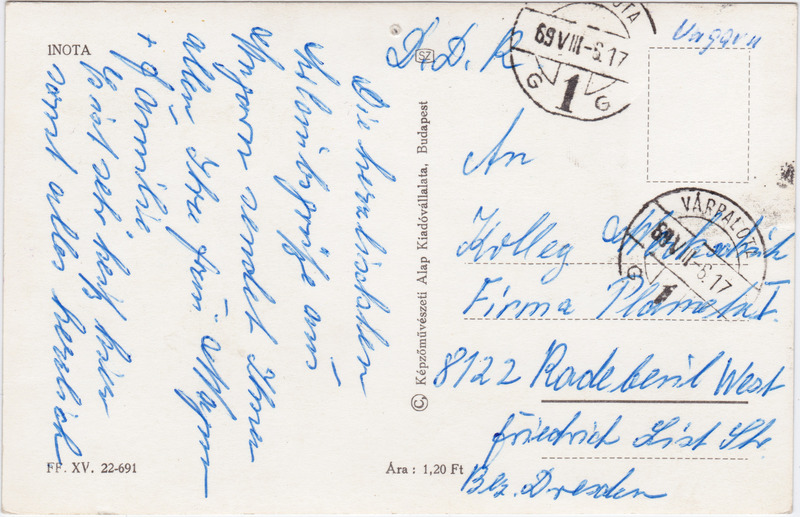 INOTA
Die herzlichsten
Urlaubsgrüße aus
Ungarn sendet Ihnen
allen Ihre
+ Familie
Es ist sehr heiß hier
sonst alles herzlich
FF. XV. 22-691
Ára : 1,20 Ft
© Képzőművészeti Alap Kiadóvállalata, Budapest
SZ
D.D.R.
69 VIII-6.17
G 1 G
Ungarn
VÁRPALOTA
69 VIII-6.17
G 1
An
Kolleg
Firma Planeta
8122 Radebeul West
Friedrich List Str
Bez. Dresden